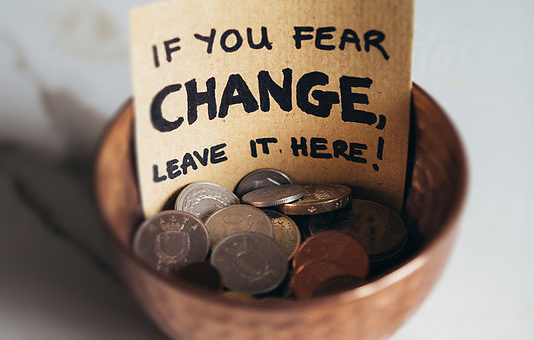 IF YOU FEAR
CHANGE,
LEAVE IT HERE!